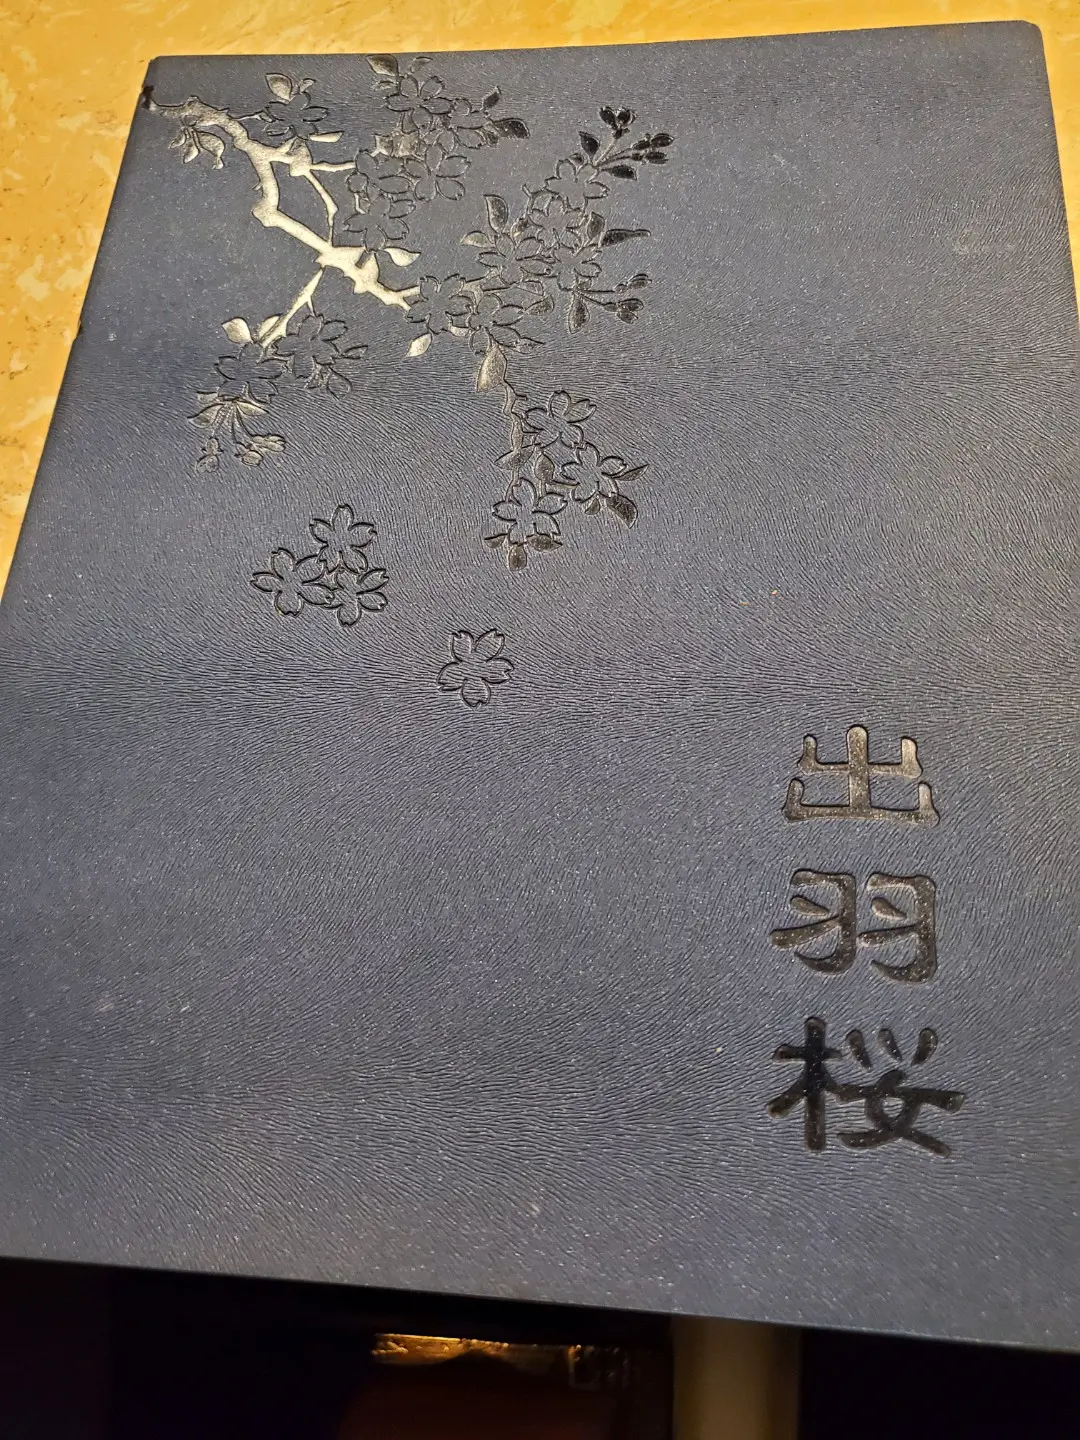 出羽桜